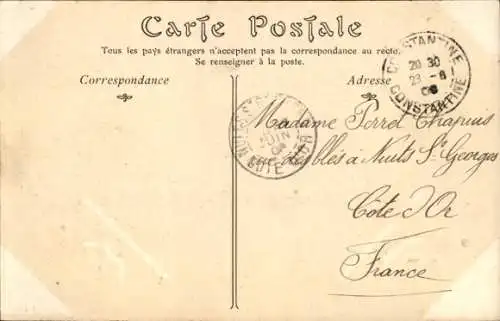 Carte Postale
Tous les pays étrangers n'acceptent pas la correspondance au recto.
Se renseigner à la poste.
Correspondance
Adresse
CONSTANTINE
20 30
23 - 6
CONSTANTINE
JUIN
CÔTE D'OR
Madame Perret Chapuis
rue des blés à Nuits St Georges
Côte d'Or
France